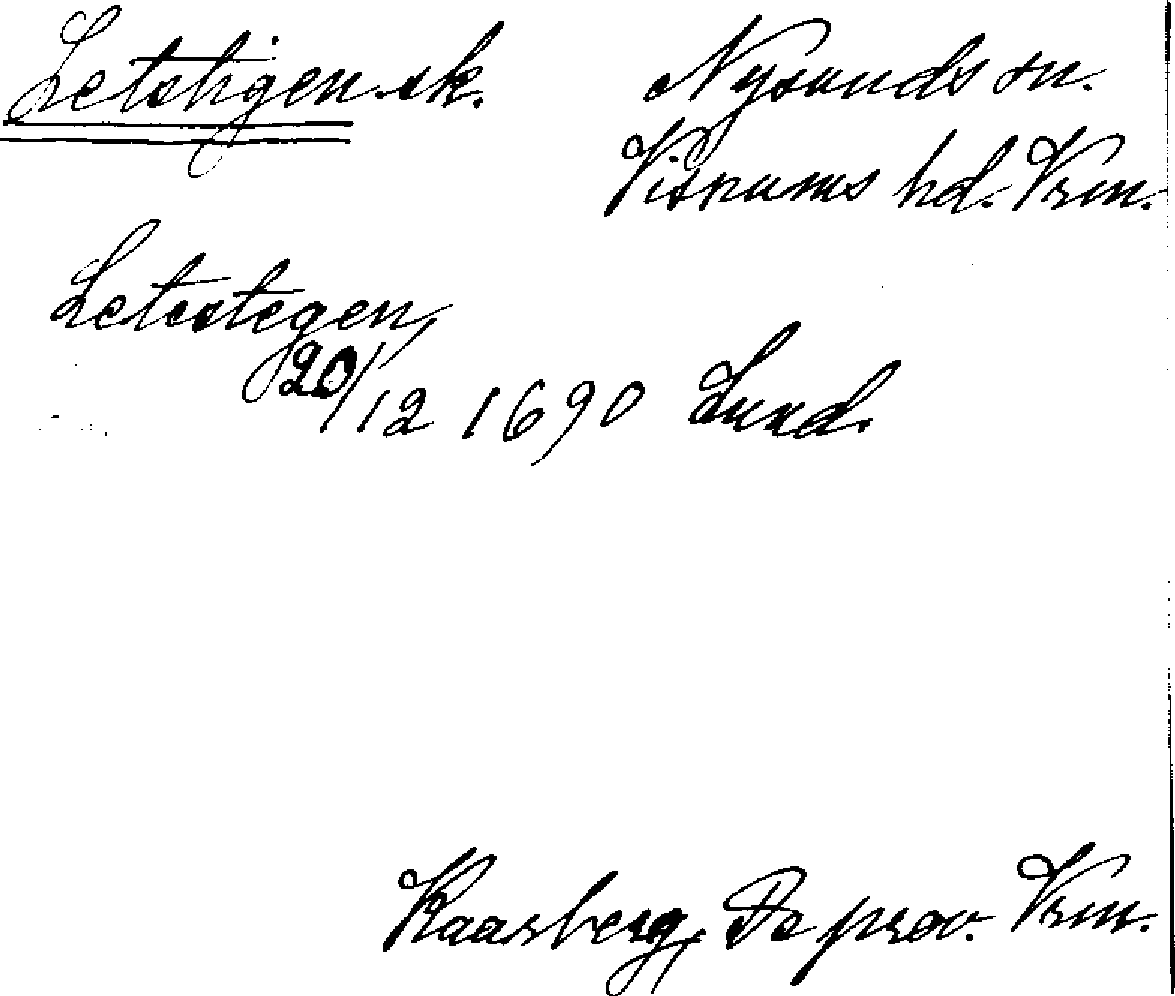 Letstigen sk. Nysunds sn.
Visnums hd. Vrm.
Letestegen,
20/12 1690 Lund.
Kaarberg, De prov. Vrm.